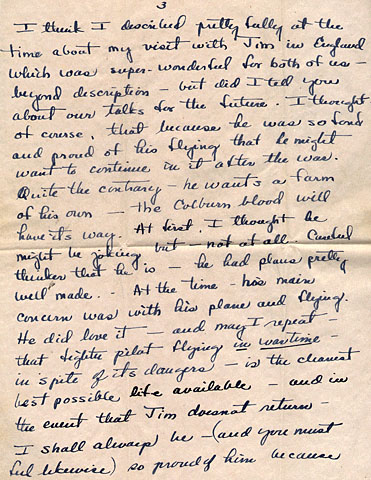 3
I think I described pretty fully at the
time about my visit with Jim in England
which was super-wonderful for both of us -
beyond description - but did I tell you
about our talks for the future. I thought
of course, that because he was so fond
and proud of his flying that he might
want to continue in it after the war.
Quite the contrary - he wants a farm
of his own - the Colburn blood will
have its way. At first, I thought he
might be joking but - not at all. Careful
thinker that he is - he had plans pretty
well made. - At the time - his main
concern was with his plane and flying.
He did love it - and may I repeat -
that fighter pilot flying in wartime -
in spite of its dangers - is the cleanest
best possible life available - and in
the event that Jim does not return -
I shall always be - (and you must
feel likewise) so proud of him because